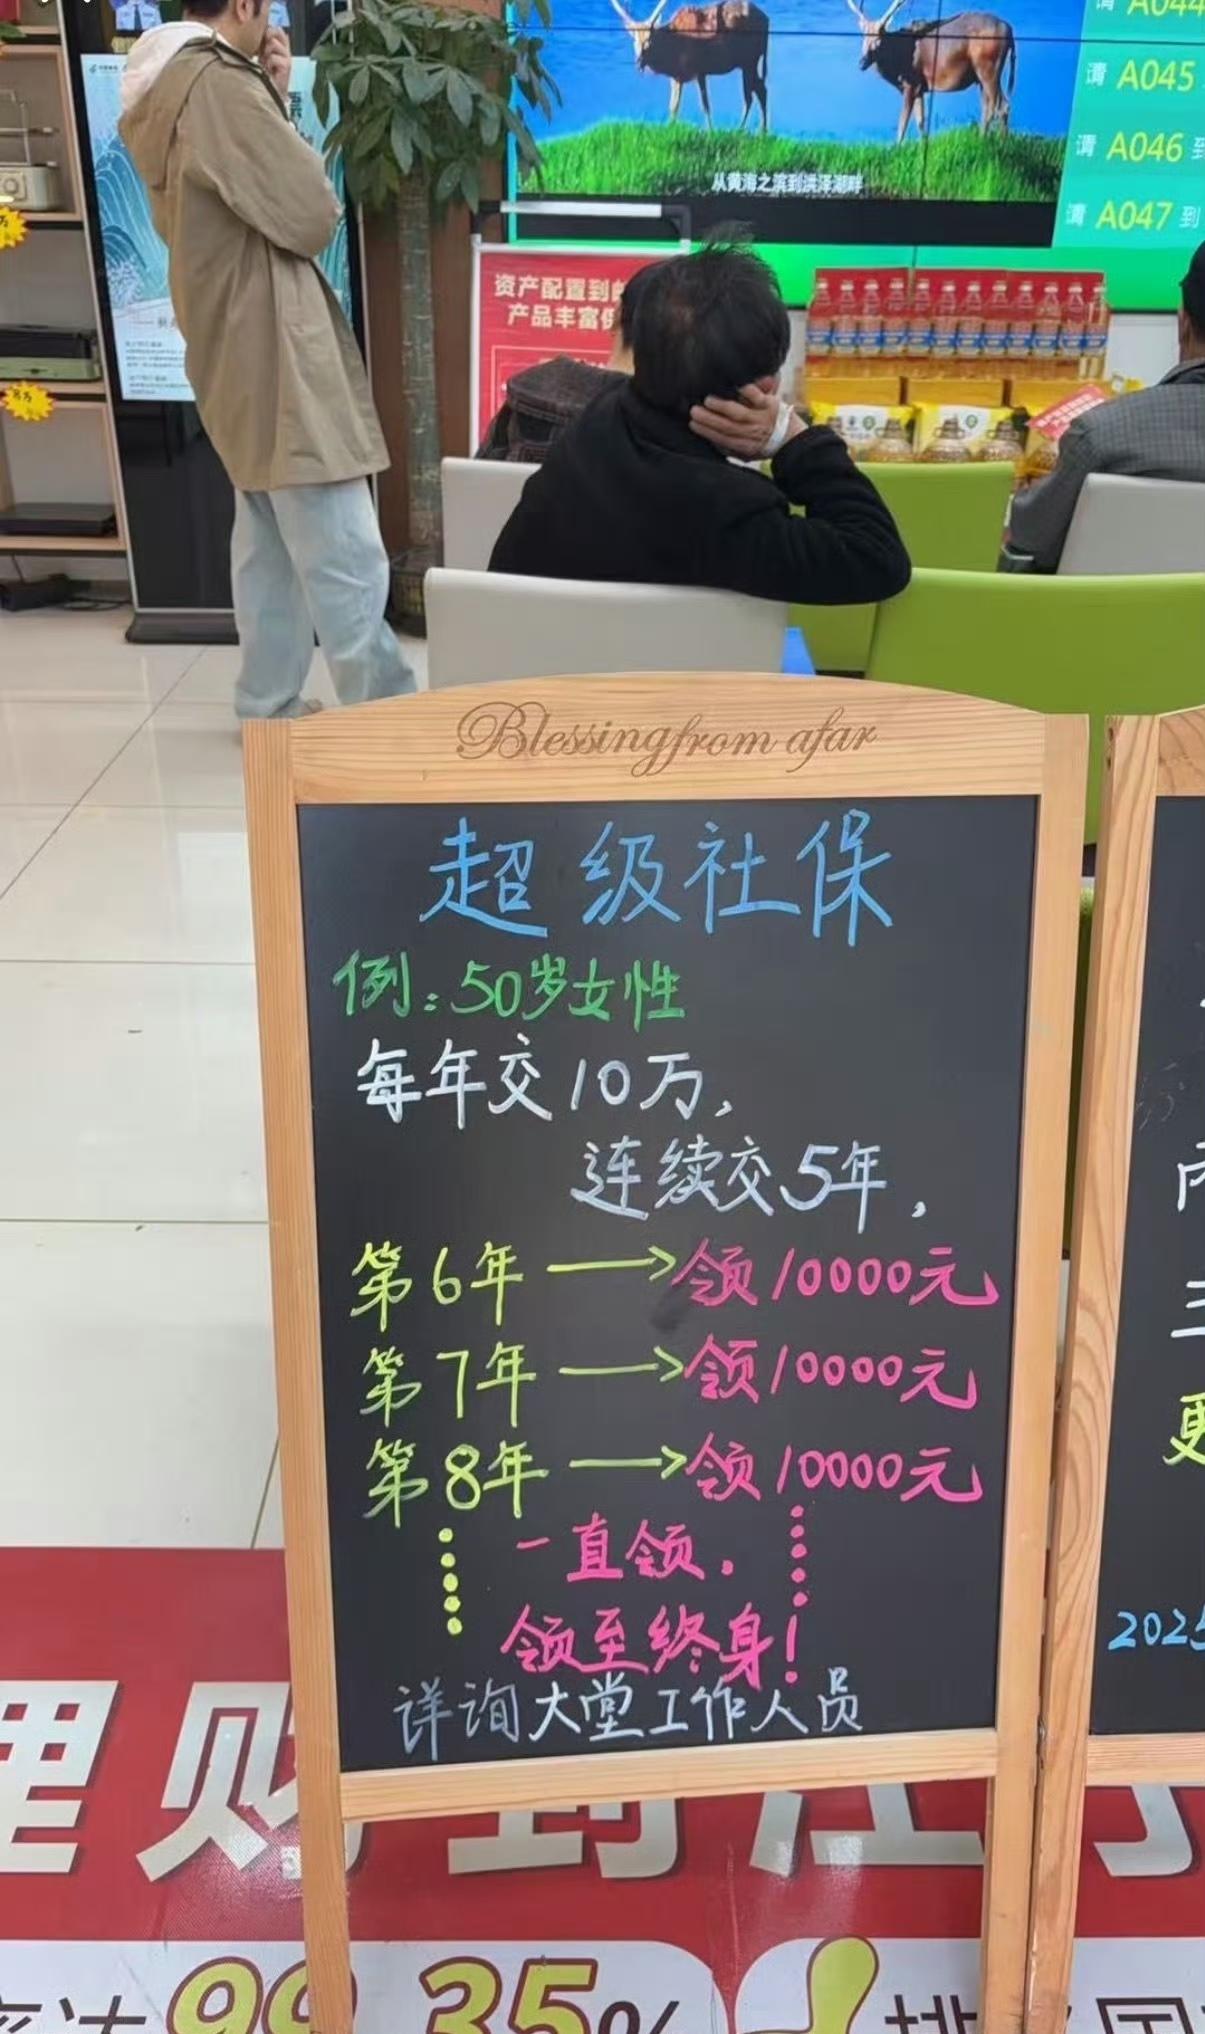 请 A044
请 A045
请 A046 到
请 A047 到
从黄海之滨到洪泽湖畔
资产配置到
产品丰富
Blessing from afar
超级社保
例:50岁女性
每年交10万,
连续交5年,
第6年→领10000元
第7年→领10000元
第8年→领10000元
一直领.
领至终身!
详询大堂工作人员
三
更
2025
理财到江
99.35%